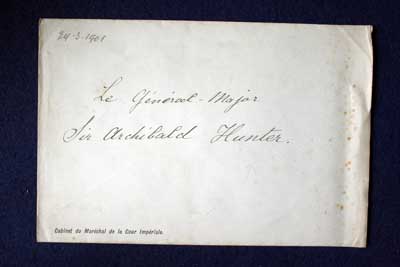 24-3-1901
Le Général-Major
Sir Archibald Hunter.
Cabinet du Maréchal de la Cour Impériale.